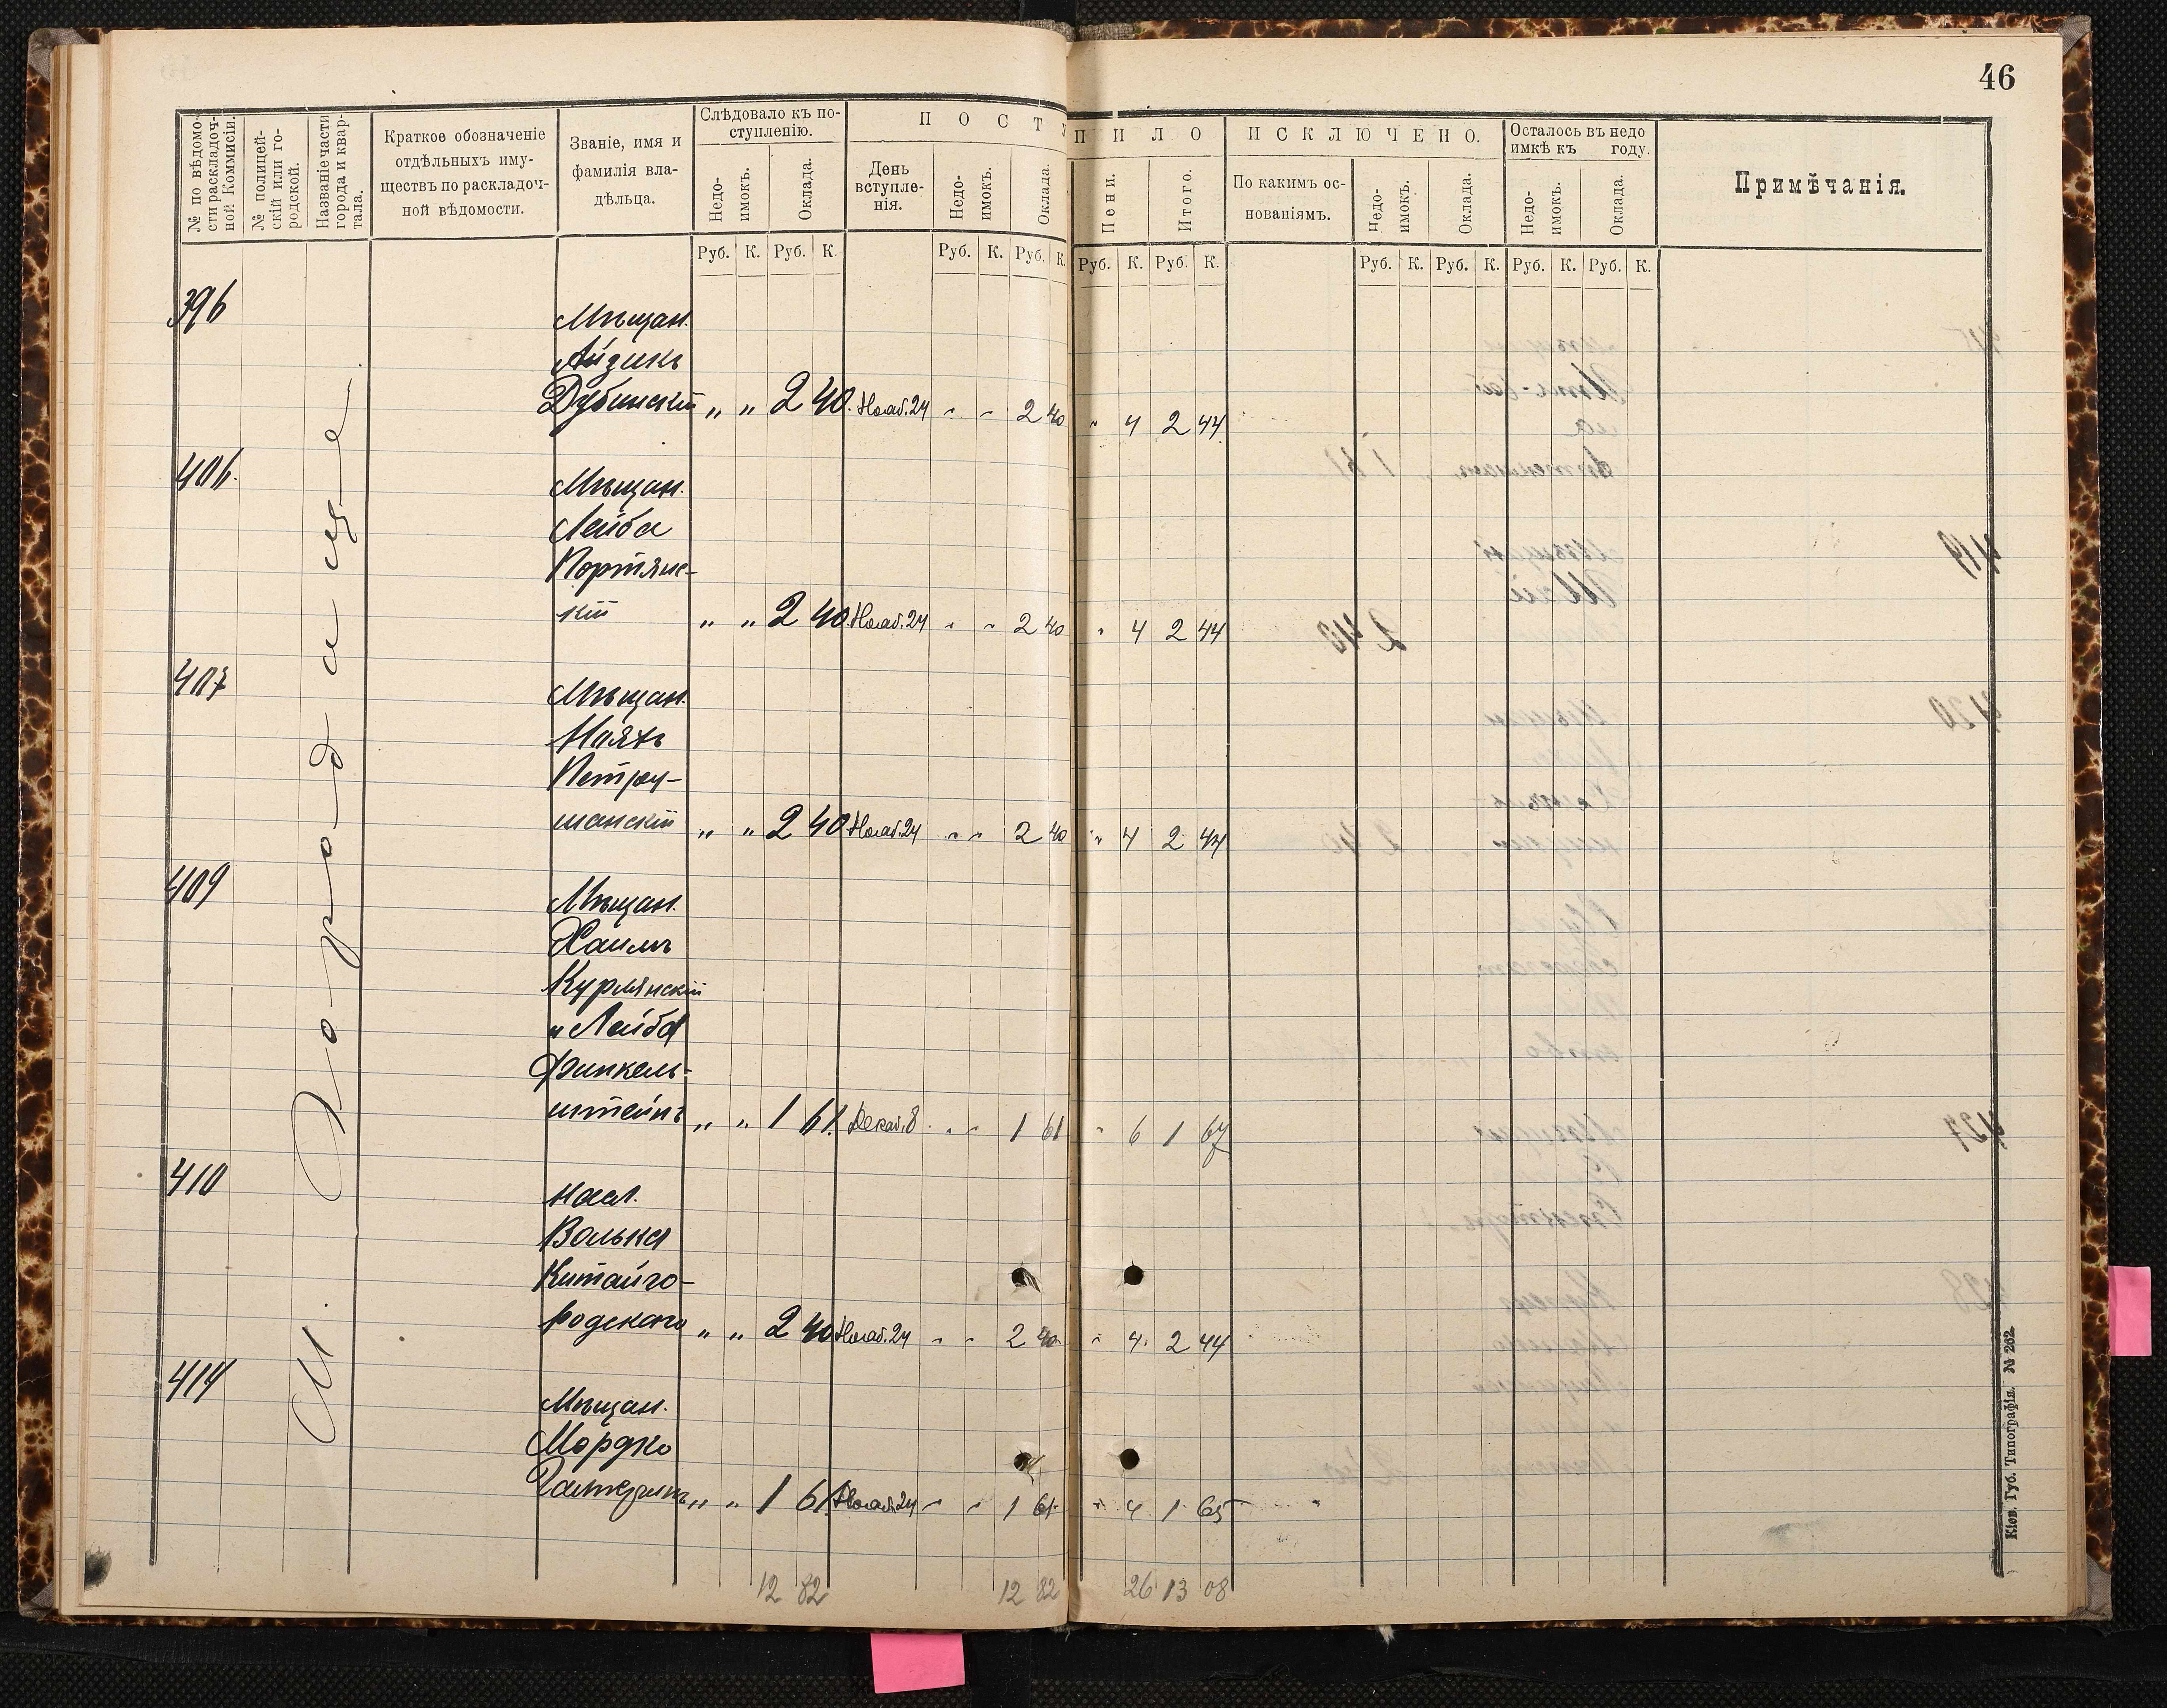 46
№ по вѣдомо-
сти раскладоч-
ной Коммисіи.
№ полицей-
скій или го-
родской.
Названіе части
города и квар-
тала.
Краткое обозначеніе
отдѣльныхъ иму-
ществъ по раскладоч-
ной вѣдомости.
Званіе, имя и
фамилія вла-
дѣльца.
Слѣдовало къ по-
ступленію.
Недо-
имокъ.
Оклада.
ПОСТУПИЛО
День
вступле-
нія.
Недо-
имокъ.
Оклада.
Пени.
Итого.
ИСКЛЮЧЕНО.
По какимъ ос-
нованіямъ.
Недо-
имокъ.
Оклада.
Осталось въ недо
имкѣ къ году.
Недо-
имокъ.
Оклада.
Примѣчанія.
Руб. К. Руб. К. Руб. К. Руб. К. Руб. К. Руб. К. Руб. К. Руб. К. Руб. К. Руб. К.
М. Городище
396
Мѣщан.
Айзикъ
Дубинскій „ „ 2 40. Нояб. 24 „ „ 2 40 „ 4 2 44
406.
Мѣщан.
Лейба
Портянс-
кій „ „ 2 40. Нояб. 24 „ „ 2 40 „ 4 2 44
407
Мѣщан.
Петру-
шанскій „ „ 2 40 Нояб. 24 „ „ 2 40 „ 4 2 44
409
Мѣщан.
Хаимъ
Курлянскій
и Лейба
Финкель-
штейнъ „ „ 1 61. Декаб. 8 „ „ 1 61 „ 6 1 67
410
Насл.
Волька
Китайго-
родского „ „ 2 40 Нояб. 24 „ „ 2 40 „ 4. 2 44
414
Мѣщан.
Мордко
„ „ 1 61. Нояб. 24 „ „ 1 61 „ 4 1 65
12 82 12 82 26 13 08
Кіев. Губ. Типографія. № 262.